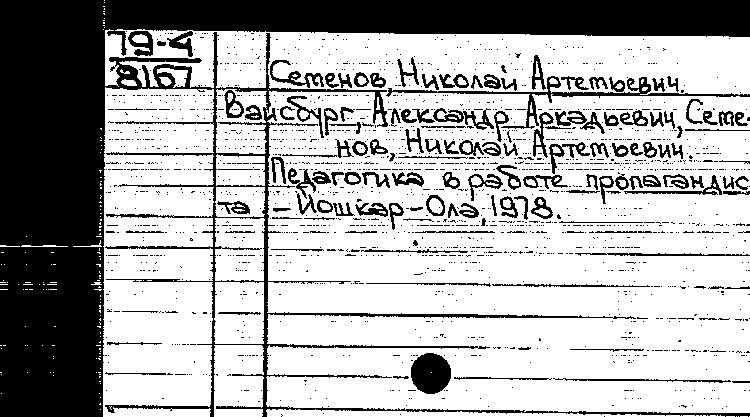 79-4
8167
Семенов, Николай Артемьевич.
Вайсбург, Александр Аркадьевич, Семе-
нов, Николай Артемьевич.
Педагогика в работе пропагандис
та - Йошкар-Ола, 1978.